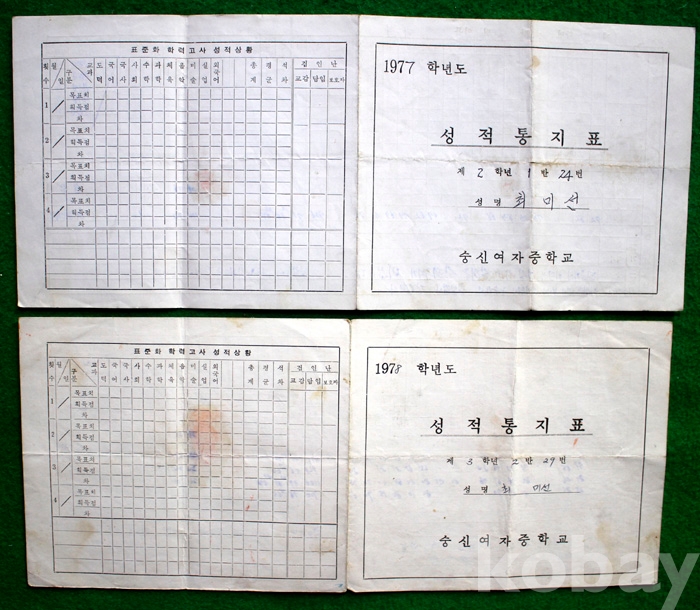 표준화 학력고사 성적상황
획수 월일 구분 교과 도덕 국어 국사 사회 수학 과학 체육 음악 미술 실업 외국어 총계 평균 석차 검인난
교감 담임 보호자
1 목표치
획득점
차
2 목표치
획득점
차
3 목표치
획득점
차
4 목표치
획득점
차
1977 학년도
성적통지표
제 2 학년 1 반 24번
성명 최미선
숭신여자중학교
표준화 학력고사 성적상황
획수 월일 구분 교과 도덕 국어 국사 사회 수학 과학 체육 음악 미술 실업 외국어 총계 평균 석차 검인난
교감 담임 보호자
1 목표치
획득점
차
2 목표치
획득점
차
3 목표치
획득점
차
4 목표치
획득점
차
1978 학년도
성적통지표
제 3 학년 2 반 29번
성명 최 미선
숭신여자중학교
kobay